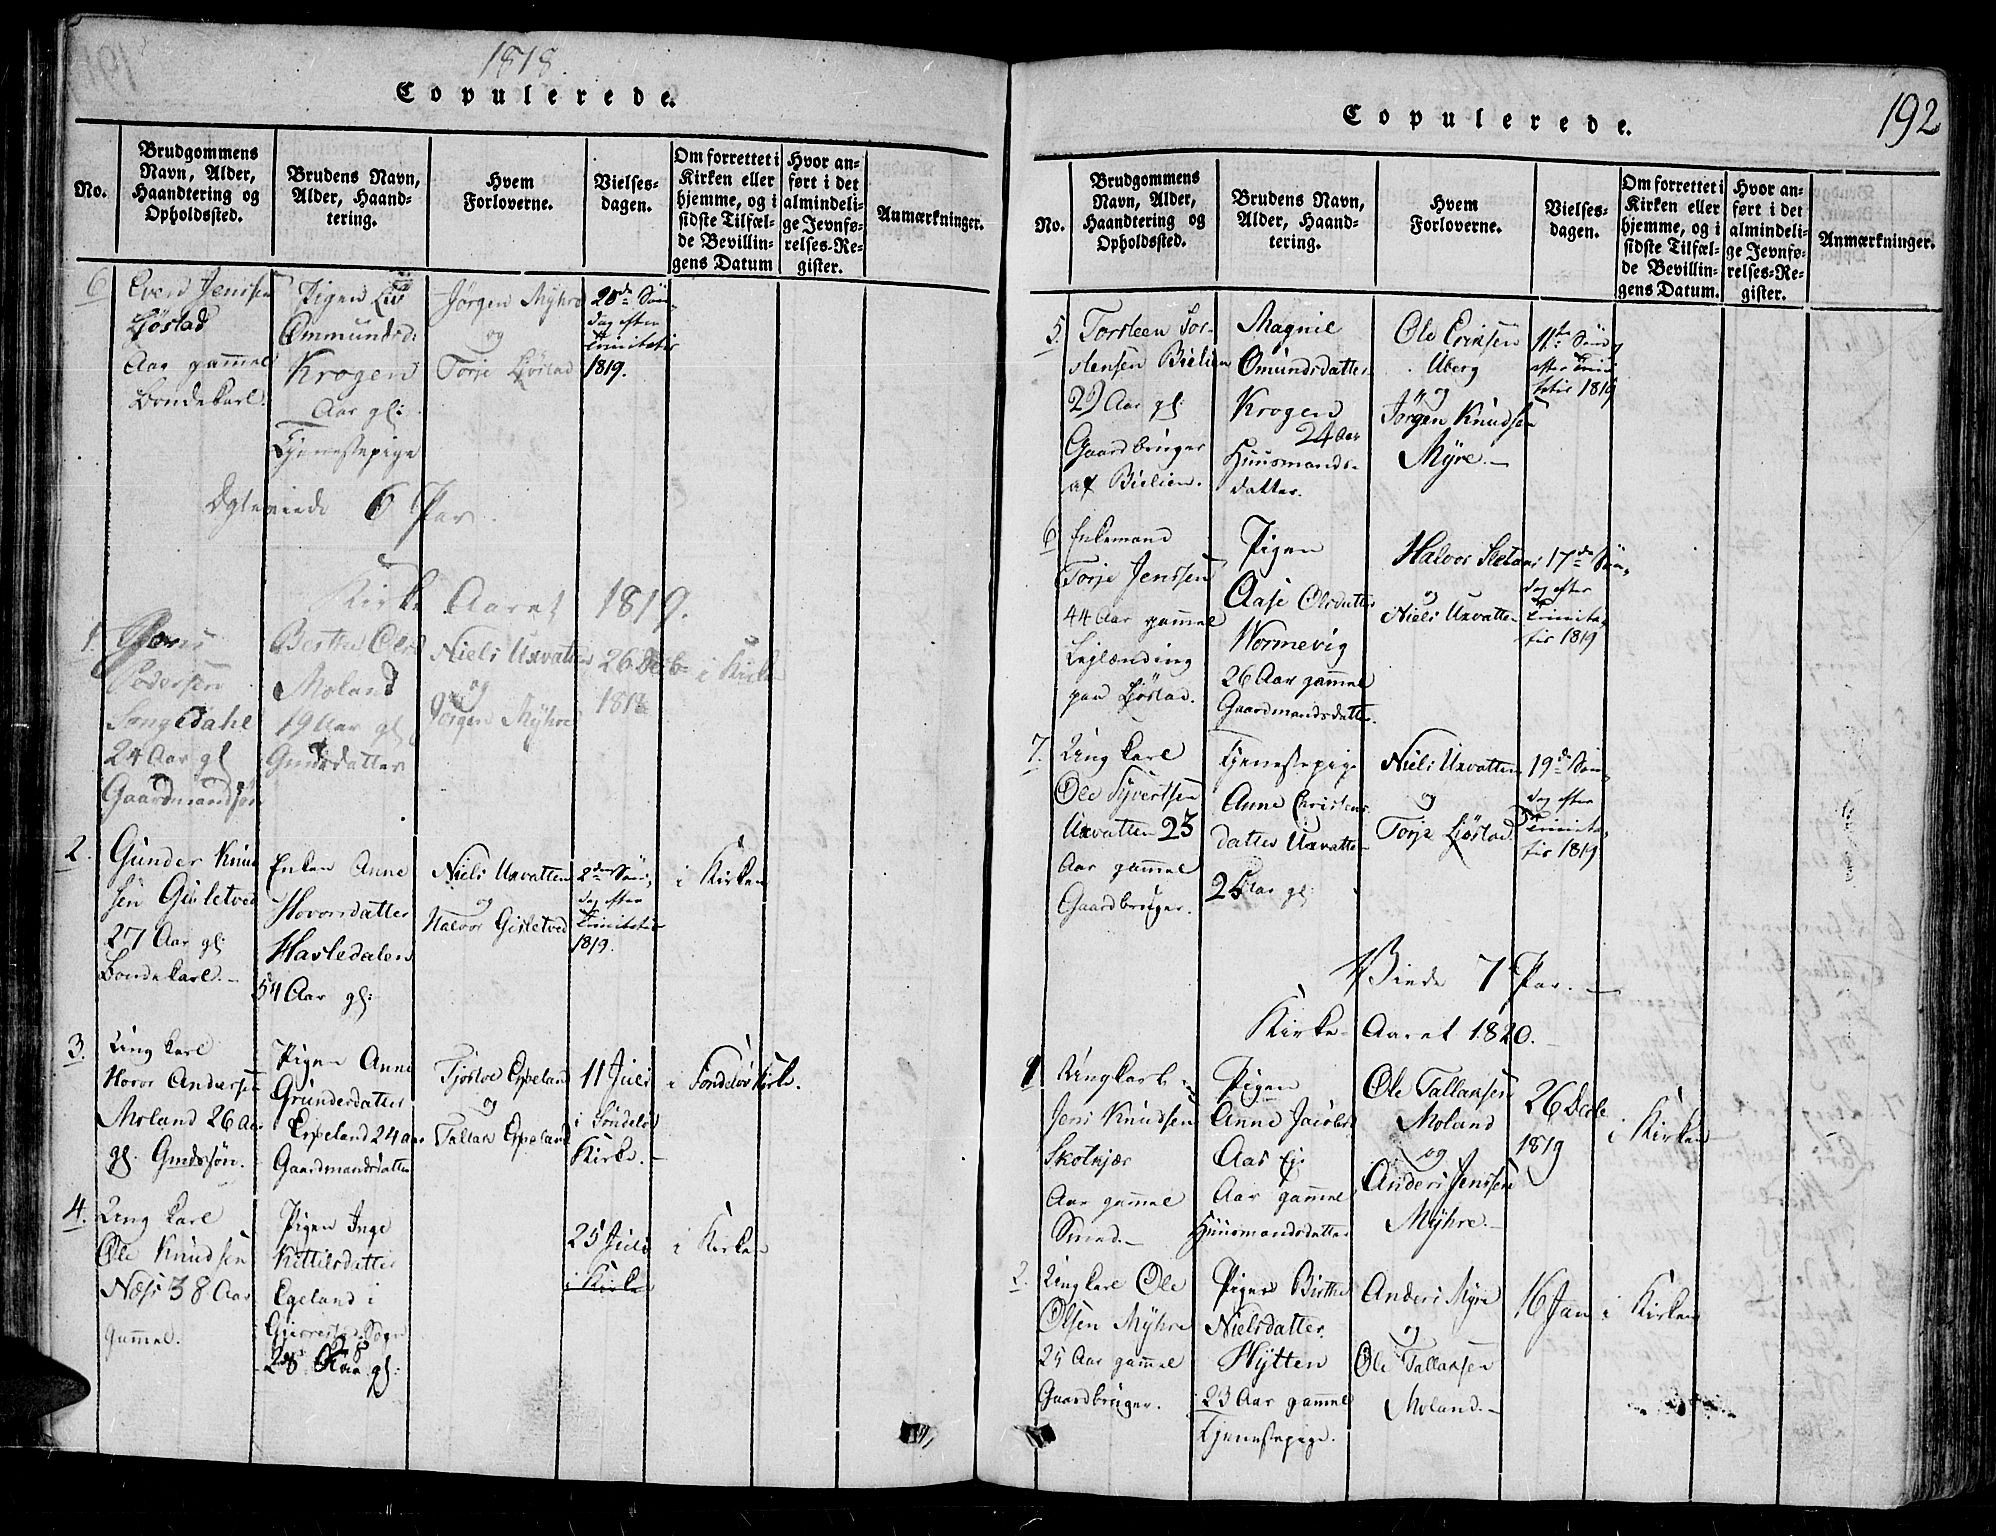 1818.
Copulerede.
No.
Brudgommens
Navn, Alder,
Haandtering og
Opholdssted.
Brudens Navn,
Alder, Haand-
tering.
Hvem
Forloverne.
Vielses-
dagen.
Om forrettet i
Kirken eller
hjemme, og i
sidste Tilfæl-
de Bevillin-
gens Datum
Hvor an-
ført i det
almindeli-
ge Jevnfø-
relses-Re-
gister.
Anmærkninger.
6
Even Jenssen
Aar gammel
Bondekarl.
Pigen Liv
Ommundsd:
Krogen
Aar gl:
Tjenestepige
Jørgen Myhre
og
Torje
20de Søn-
dag efter
Trinitatis
1819.
6 Par
Kirke Aaret 1819.
1.
Jens
Pedersen
Songedahl
24 Aar gl
Gaardmandssøn
Berthe Olsd
Moland
19 Aar gl
Gmdsdatter
Niels Uxvatten
og
Jørgen Myhre
26 Decb
1818
i Kirken
2.
Gunder Knud
sen Gisletved
27 Aar gl:
Bondekarl.-
Enken Anne
Hovorsdatter
Hasledalen
54 Aar gl:
Niels Uxvatten
og
Halvor Gisletved
2den Søn-
dag efter
Trinitatis
1819.
i Kirken
3.
Ung karl
Hovor Andersen
Moland 26 Aar
gl. Gmdssøn.
Pigen Anne
Gundersdatter
Espeland 24 aar
Gaardmandsdatter
Tjøstov Espeland
og
Tallak Espeland
11 Juli
i Søndeløv
Kirke.-
i Søndeløv Kirk.
4.
Ung karl
Ole Knudsen
Næs 38 Aar
gammel.
Pigen Inge
Kittilsdatter
Egeland i
Gjerrestad Sogn
28 Aar gl:
25 Juli
i Kirken
i Kirken
192
Copulerede.
No.
Brudgommens
Navn, Alder,
Haandtering og
Opholdssted.
Brudens Navn,
Alder, Haand-
tering.
Hvem
Forloverne.
Vielses-
dagen.
Om forrettet i
Kirken eller
hjemme, og i
sidste Tilfæl-
de Bevillin-
gens Datum.
Hvor an-
ført i det
almindeli-
ge Jevnfø-
relses-Re-
gister.
Anmærkninger.
5.
Torsteen Tor-
stensen Bielien
29 Aar gl:
Gaardbruger
af Bielien.
Magnil
Omundsdatter
Krogen
24 Aar
Huusmands-
datter.
Ole Eriksen
Uberg
og
Jørgen Knudsen
Myre.-
11te Sønd
efter Trini
tatis 1819
6
Enkemand
Torje Jenssen
44 Aar gammel
Leilænding
paa
Pigen
Aase Olsdatter
Wormevig
26 Aar gammel
Gaardmandsdatter.
Halvor
og
Niels Uxvatten
17de Søn-
dag efter
Trinita-
tis 1819
7.
Ung karl
Ole Syvertsen
Uxvatten 23
Aar gammel
Gaardbruger.
Tjenestepige
Anne Christens
datter Uxvatten
25 Aar gl:
Niels Uxvatten
og
Torje
19de Søn-
dag efter
Trinita-
tis 1819
Viede 7 Par.-
Kirke- Aaret 1820.-
1
Ungkarl
Jens Knudsen
Skotkjær
Aar gammel
Smed.-
Pigen
Anne Jacobsd
Aas Ej:
Aar gammel
Huusmandsdatter
Ole Tallaksen
Moland
og
Anders Jenssen
Myhre.-
26 Decbr
1819
i Kirken
2.
Ungkarl Ole
Olsen Myhre
25 Aar gammel
Gaardbruger.
Pigen Birthe
Nielsdatter
Hytten
23 Aar gammel
Tjenestepige.
Anders Myre
og
Ole Tallaksen
Moland.-
16 Jan
i Kirken